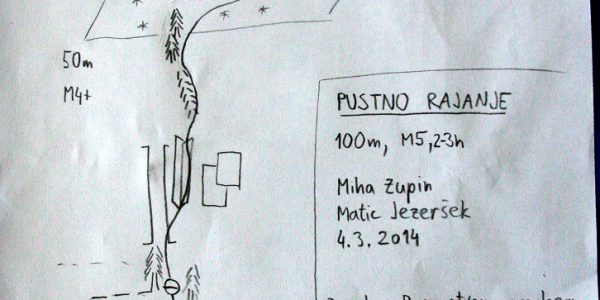 50m
M4+
PUSTNO RAJANJE
100m, M5, 2-3h
Miha Zupin
Matic Jezeršek
4.3.2014